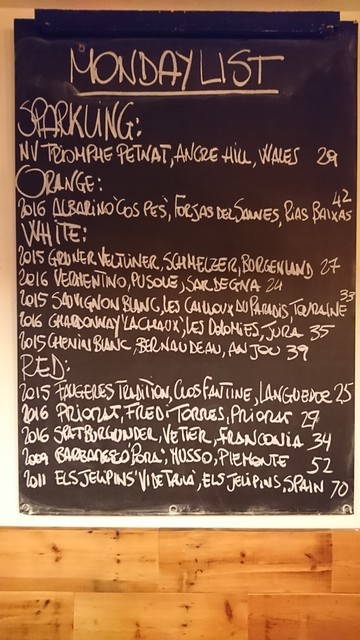 MONDAY LIST
SPARKLING:
NV TRIOMPHE PETNAT, ANCRE HILL, WALES 29
ORANGE:
2016 ALBARINO 'COS PES', FORJAS DEL SALNES, RIAS BAIXAS 42
WHITE:
2015 GRUNER VELTLINER, SCHMELZER, BURGENLAND 27
2016 VERMENTINO, PUSOLE, SARDEGNA 24
2015 SAUVIGNON BLANC, LES CAILLOUX DU PARADIS, TOURAINE 33
2016 CHARDONNAY 'LACHAUX', LES DOLOMIES, JURA 35
2015 CHENIN BLANC, BERNAUDEAU, ANJOU 39
RED:
2015 FAUGERES TRADITION, CLOS FANTINE, LANGUEDOC 25
2016 PRIORAT, FREDI TORRES, PRIORAT 27
2016 SPATBURGUNDER, VETTER, FRANCONIA 34
2009 BARBARESCO PORA', MUSSO, PIEMONTE 52
2011 ELS JELIPINS ELS JELIPINS, SPAIN 70